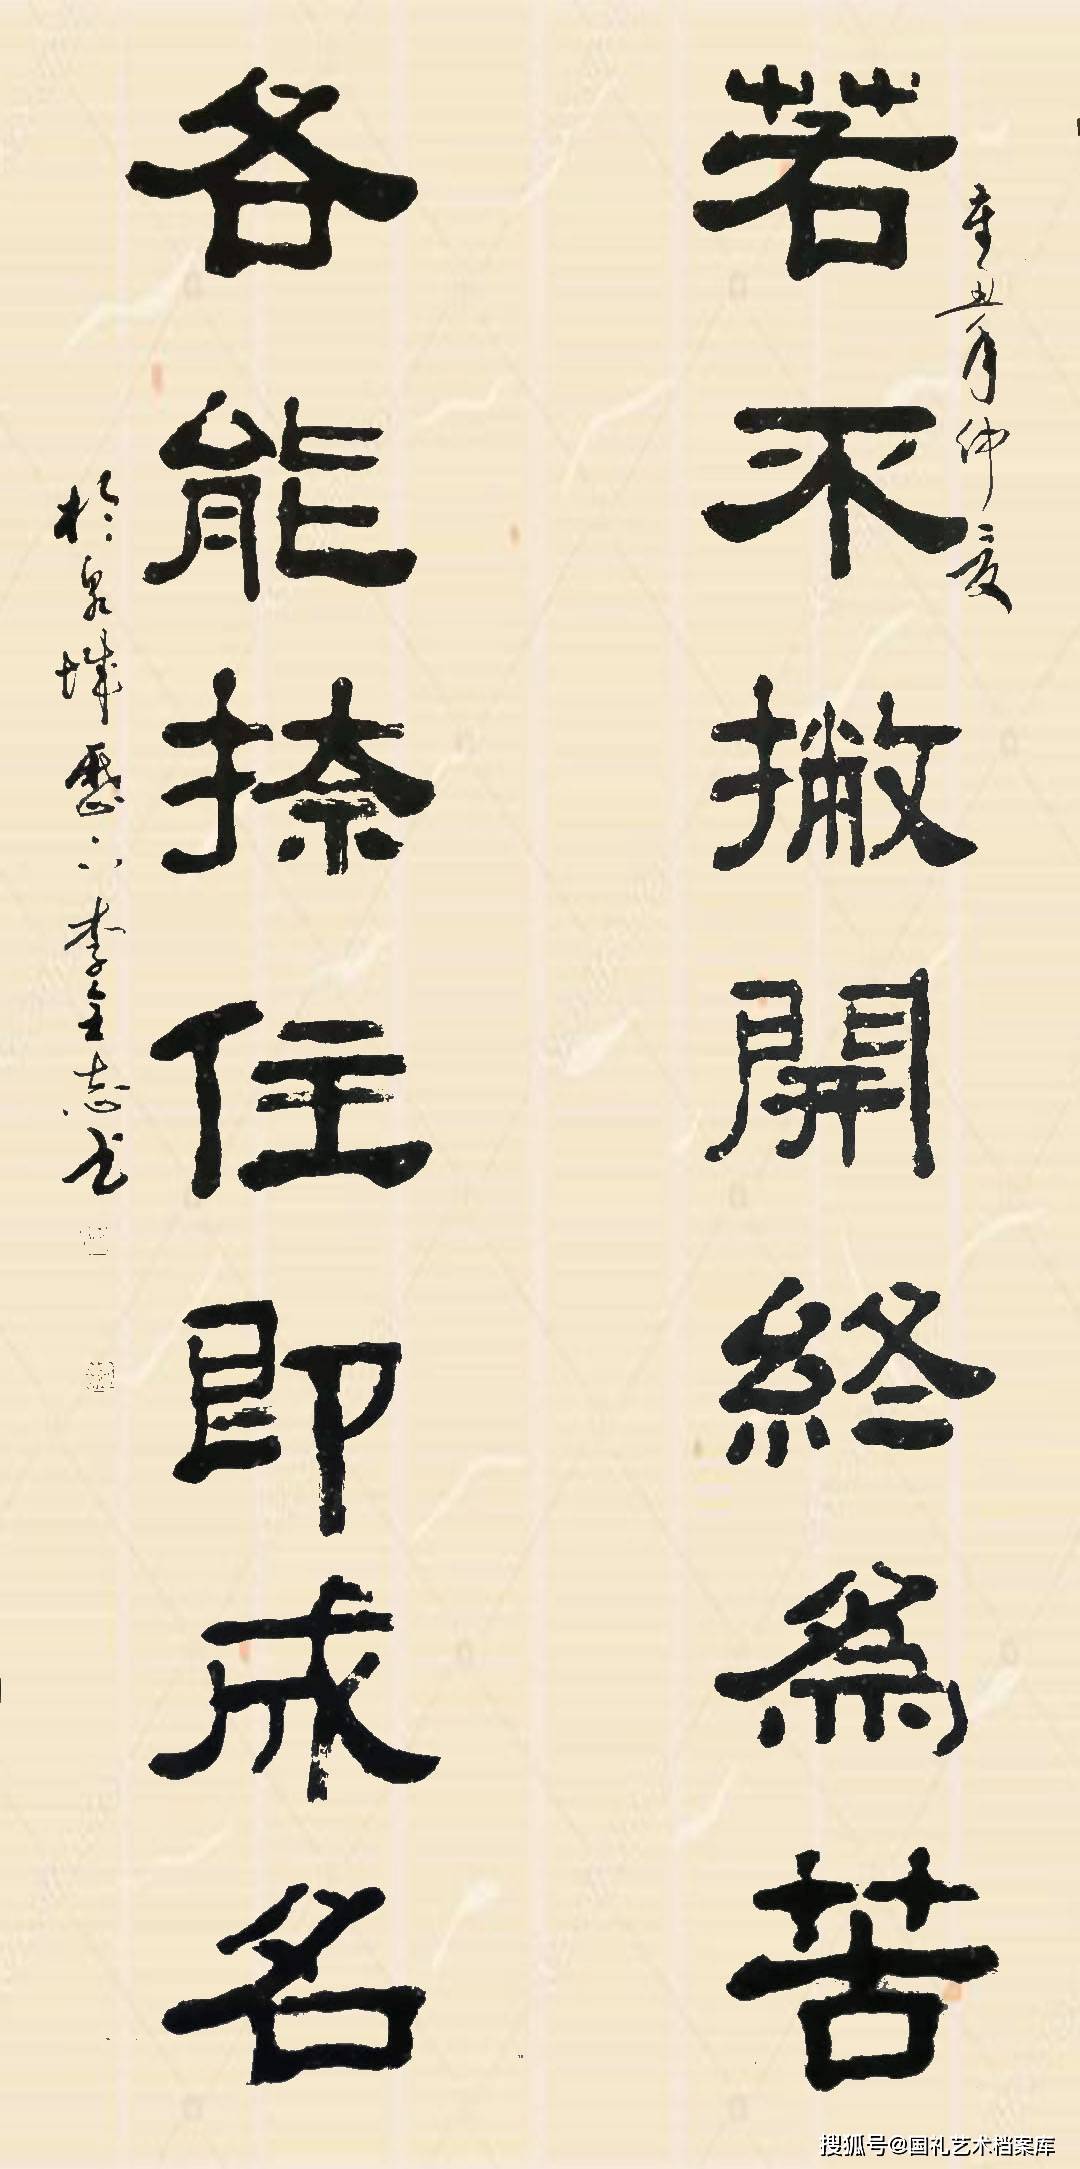 辛丑年仲夏
若不撇開終為苦
各能捺住即成名
於泉城歷下李金志书
搜狐号@国礼艺术档案库